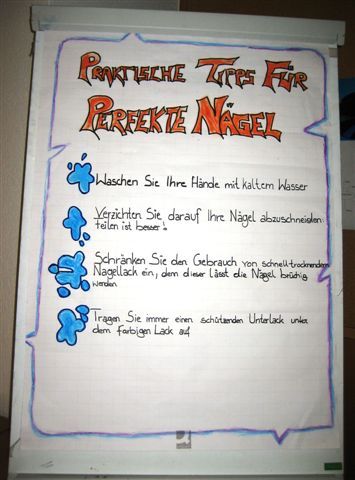 Praktische Tipps Für
Perfekte Nägel
Waschen Sie Ihre Hände mit kaltem Wasser
Verzichten Sie darauf Ihre Nägel abzuschneiden:
feilen ist besser!
Schränken Sie den Gebrauch von schnell-trocknendem
Nagellack ein, denn dieser lässt die Nägel brüchig
werden
Tragen Sie immer einen schützenden Unterlack unter
dem farbigen Lack auf